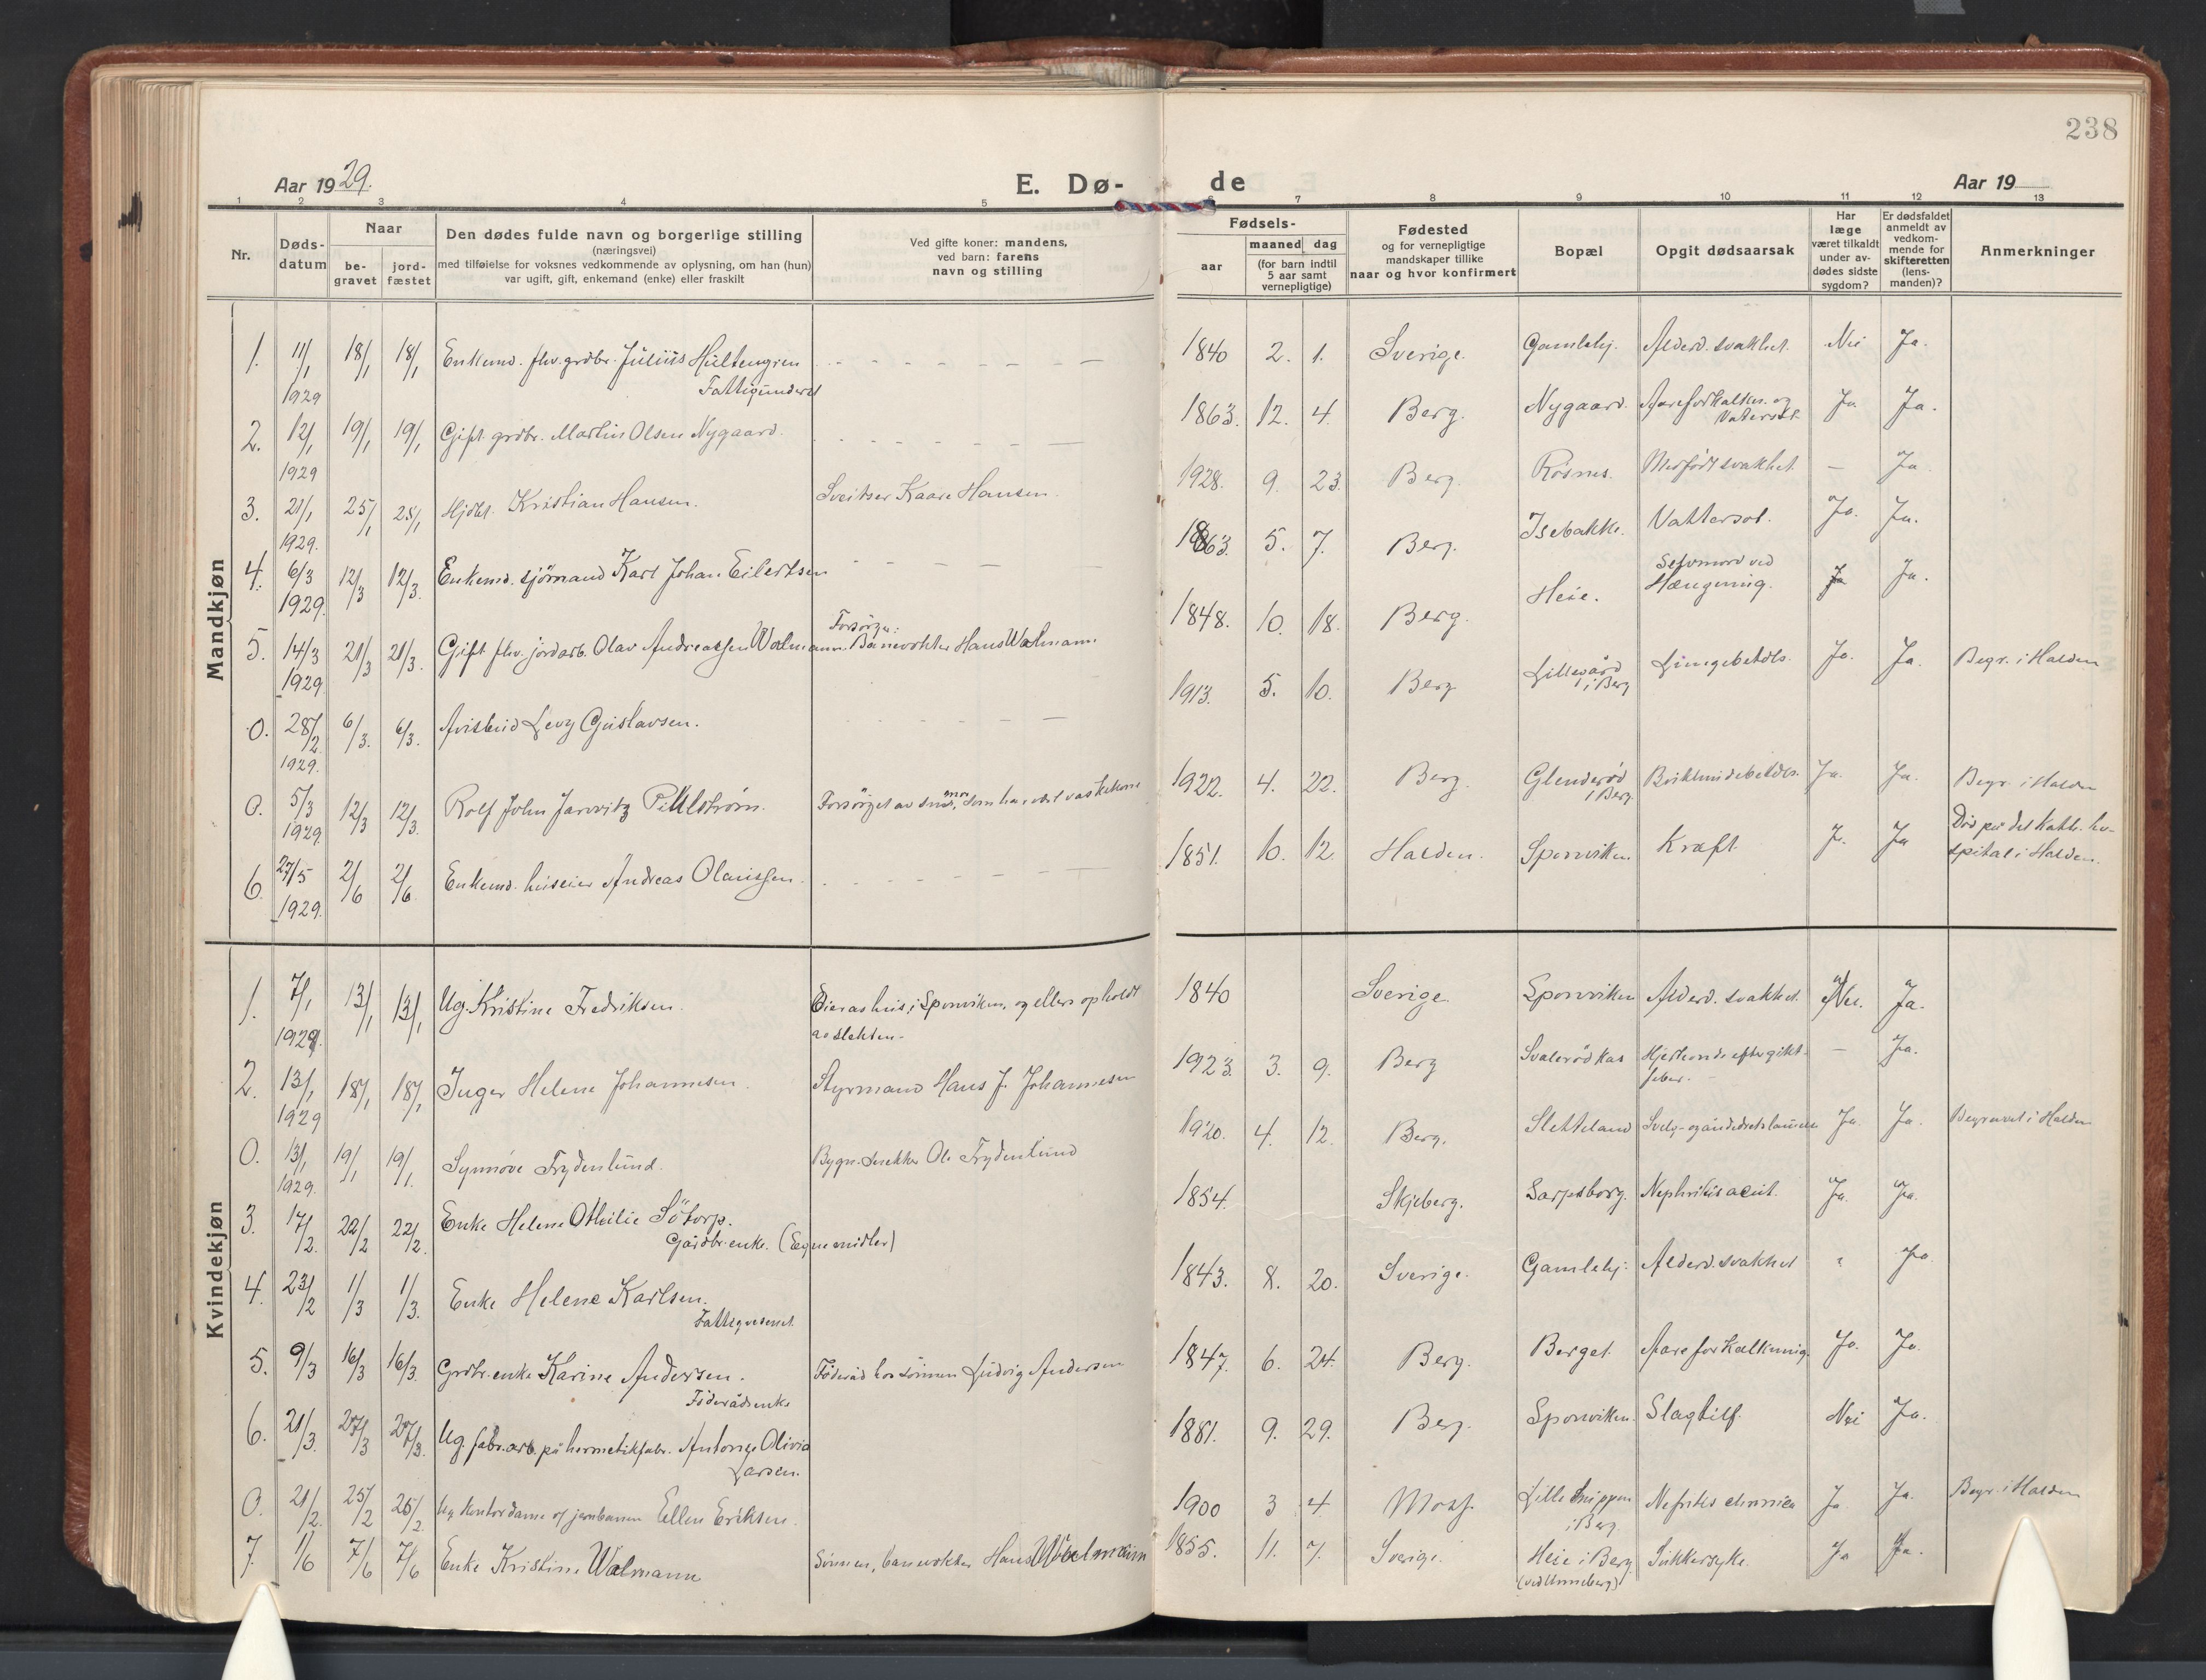 238
Aar 1929.
E. Dø-
de
Aar 19
1 2 3 4 5 6 7 8 9 10 11 12 13
Nr.
Døds-
datum
Naar
be-
gravet
jord-
fæstet
Den dødes fulde navn og borgerlige stilling
(næringsvei)
med tilføielse for voksnes vedkommende av oplysning, om han (hun)
var ugift, gift, enkemand (enke) eller fraskilt
Ved gifte koner: mandens,
ved barn: farens
navn og stilling
Fødsels-
aar
maaned dag
(for barn indtil
5 aar samt
vernepligtige)
Fødested
og for vernepligtige
mandskaper tillike
naar og hvor konfirmert
Bopæl
Opgit dødsaarsak
Har
læge
været tilkaldt
under av-
dødes sidste
sygdom?
Er dødsfaldet
anmeldt av
vedkom-
mende for
skifteretten
(lens-
manden)?
Anmerkninger
Mandkjøn
1. 11/1 1929 18/1 18/1 Enkemd. fhv. grdbr. Julius Hultengren
Fattigunderst
1840 2. 1. Sverige. Gamlehj. Alderd. svakhet. Nei Ja.
2. 12/1 1929 19/1 19/1 Gift grdbr. Martin Olsen Nygaard.
1863. 12. 4. Berg. Nygaard. Aareforkalkn. og
Vatersot. Ja Ja.
3. 21/1 1929. 25/1 25/1 Hjdbt. Kristian Hansen. Sveitser Kaare Hansen.
1928. 9. 23. Berg. Rösnes. Medfödt svakhet. — Ja
4. 6/3 1929. 12/3 12/3. Enkemd. sjömand Karl Johan Eilertsen
1863. 5. 7. Berg. Isebakke. Vattersot. Ja. Ja.
5. 14/3 1929. 21/3 21/3. Gift fhv. jordarb. Olav Andreassen Walmann. Forsörger:
Banevokter Hans Walmann.
1848. 10. 18. Berg. Heie. Selvmord ved
Hængning. Ja Ja.
0. 28/2. 1929. 6/3. 6/3. Avisbud Levy Gustavsen.
1913. 5. 10. Berg Lillegård
i Berg Lungebetdls. Ja. Ja. Begr. i Halden
0. 5/3 1929 12/3 12/3. Rolf John Jarvitz Pihlström. Forsörget av sin mor, som har vært vaskekone
1922. 4. 22. Berg. Glenderød
i Berg. Brikhindebetdls. Ja. Ja. Begr. i Halden
6. 27/5 1929. 2/6 2/6. Enkemd. huseier Andreas Olaussen.
1851. 10. 12. Halden. Sponviken Kræft. Ja. Ja Död på det kath. ho-
spital i Halden.
Kvindekjøn
1. 7/1 1929. 13/1 13/1 Ug. Kristine Fredriksen. Eier as hus i Sponviken, og ellers opholdt
av slekten.
1840 Sverige. Sponviken Alderd. svakhet. Nei. Ja.
2. 13/1 1929 18/1 18/1 Inger Helene Johannesen. Styrmand Hans J. Johannesen
1923. 3. 9. Berg Svalerød kas Hjerteonde efter gikt-
feber. — Ja.
0. 13/1 1929. 19/1 19/1. Synnöve Frydenlund. Bygn. snekker Ole Frydenlund
1920. 4. 12. Berg. Sletteland Svelg- og åndedretslammelse Ja. Ja. Begravet i Halden
3. 17/2. 22/2 22/2. Enke Helene Othilie Sötorp.
Gårdbr. enke. (Egne midler)
1854. Skjeberg. Sarpsborg. Nephritis acut. Ja. Ja.
4. 23/2 1/3 1/3. Enke Helene Karlsen.
Fattigvesenet.
1843. 8. 20. Sverige. Gamlehj. Alderd. svakhet " Ja
5. 9/3 16/3 16/3. Grdbr. enke Karine Andersen. Föderåd hos sönnen Ludvig Andersen
Föderådsenke
1847. 6. 24. Berg. Berget. Aareforkalkning. Ja. Ja.
6. 21/3. 27/3 27/3. Ug. fabr. arb. på hermetikfabr. Antonie Olivia
Larsen.
1881. 9. 29. Berg. Sponviken. Slagtilf. Nei Ja.
0. 21/2. 25/2 25/2. Ug. kontordame v/ jernbanen Ellen Eriksen.
1900 3 4. Moss. Lille Snippen
i Berg. Nefritis chronica Ja Ja. Begr. i Halden
7. 1/6 7/6 7/6 Enke Kristine Walmann Sönnen, banevokter Hans Walmann
1855. 11. 7. Sverige. Heie i Berg.
(ved Unneberg) Sukkersyke. Ja Ja.